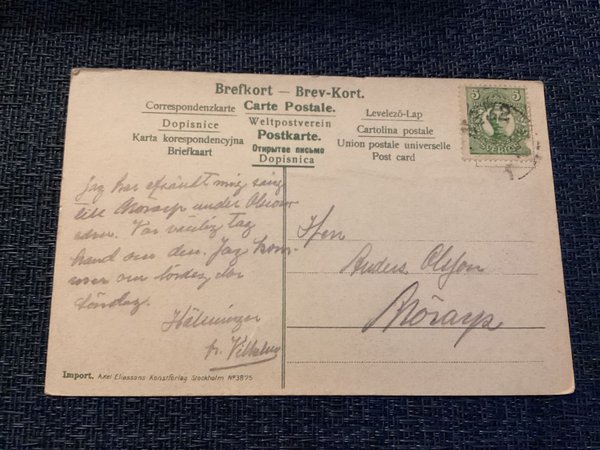 Brefkort — Brev-Kort.
Correspondenzkarte Carte Postale. Levelező-Lap
Dopisnice Weltpostverein Cartolina postale
Karta korespondencyjna Postkarte. Union postale universelle
Briefkaart Открытое письмо Post card
Dopisnica
5 5
SVERIGE
Jag har afsändt mig säng
till Mörarp under Olsons
adr. Var vänlig tag
hand om den. Jag kom-
mer om lördag eller
söndag.
Hälsningar
fr. 
Herr
Anders Olsson
Mörarp
Import. Axel Eliassons Konstförlag Stockholm No 3875